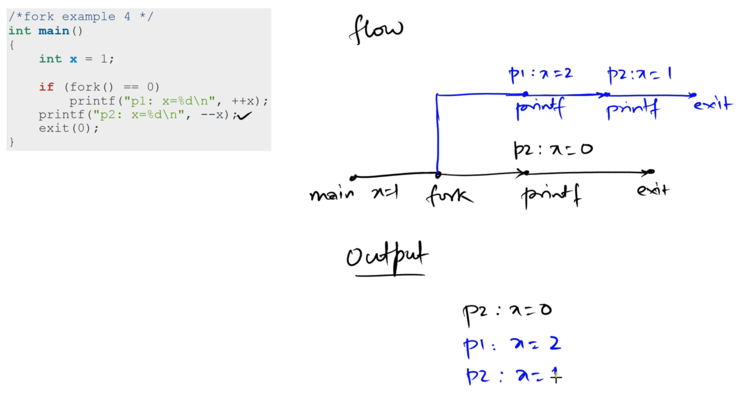 /*fork example 4 */
int main()
{
int x = 1;
if (fork() == 0)
printf("p1: x=%d\n", ++x);
printf("p2: x=%d\n", --x);
exit(0);
}
flow
p1: x=2 p2: x=1
printf printf exit
p2: x=0
main x=1 fork printf exit
Output
p2: x=0
p1: x=2
p2: x=1